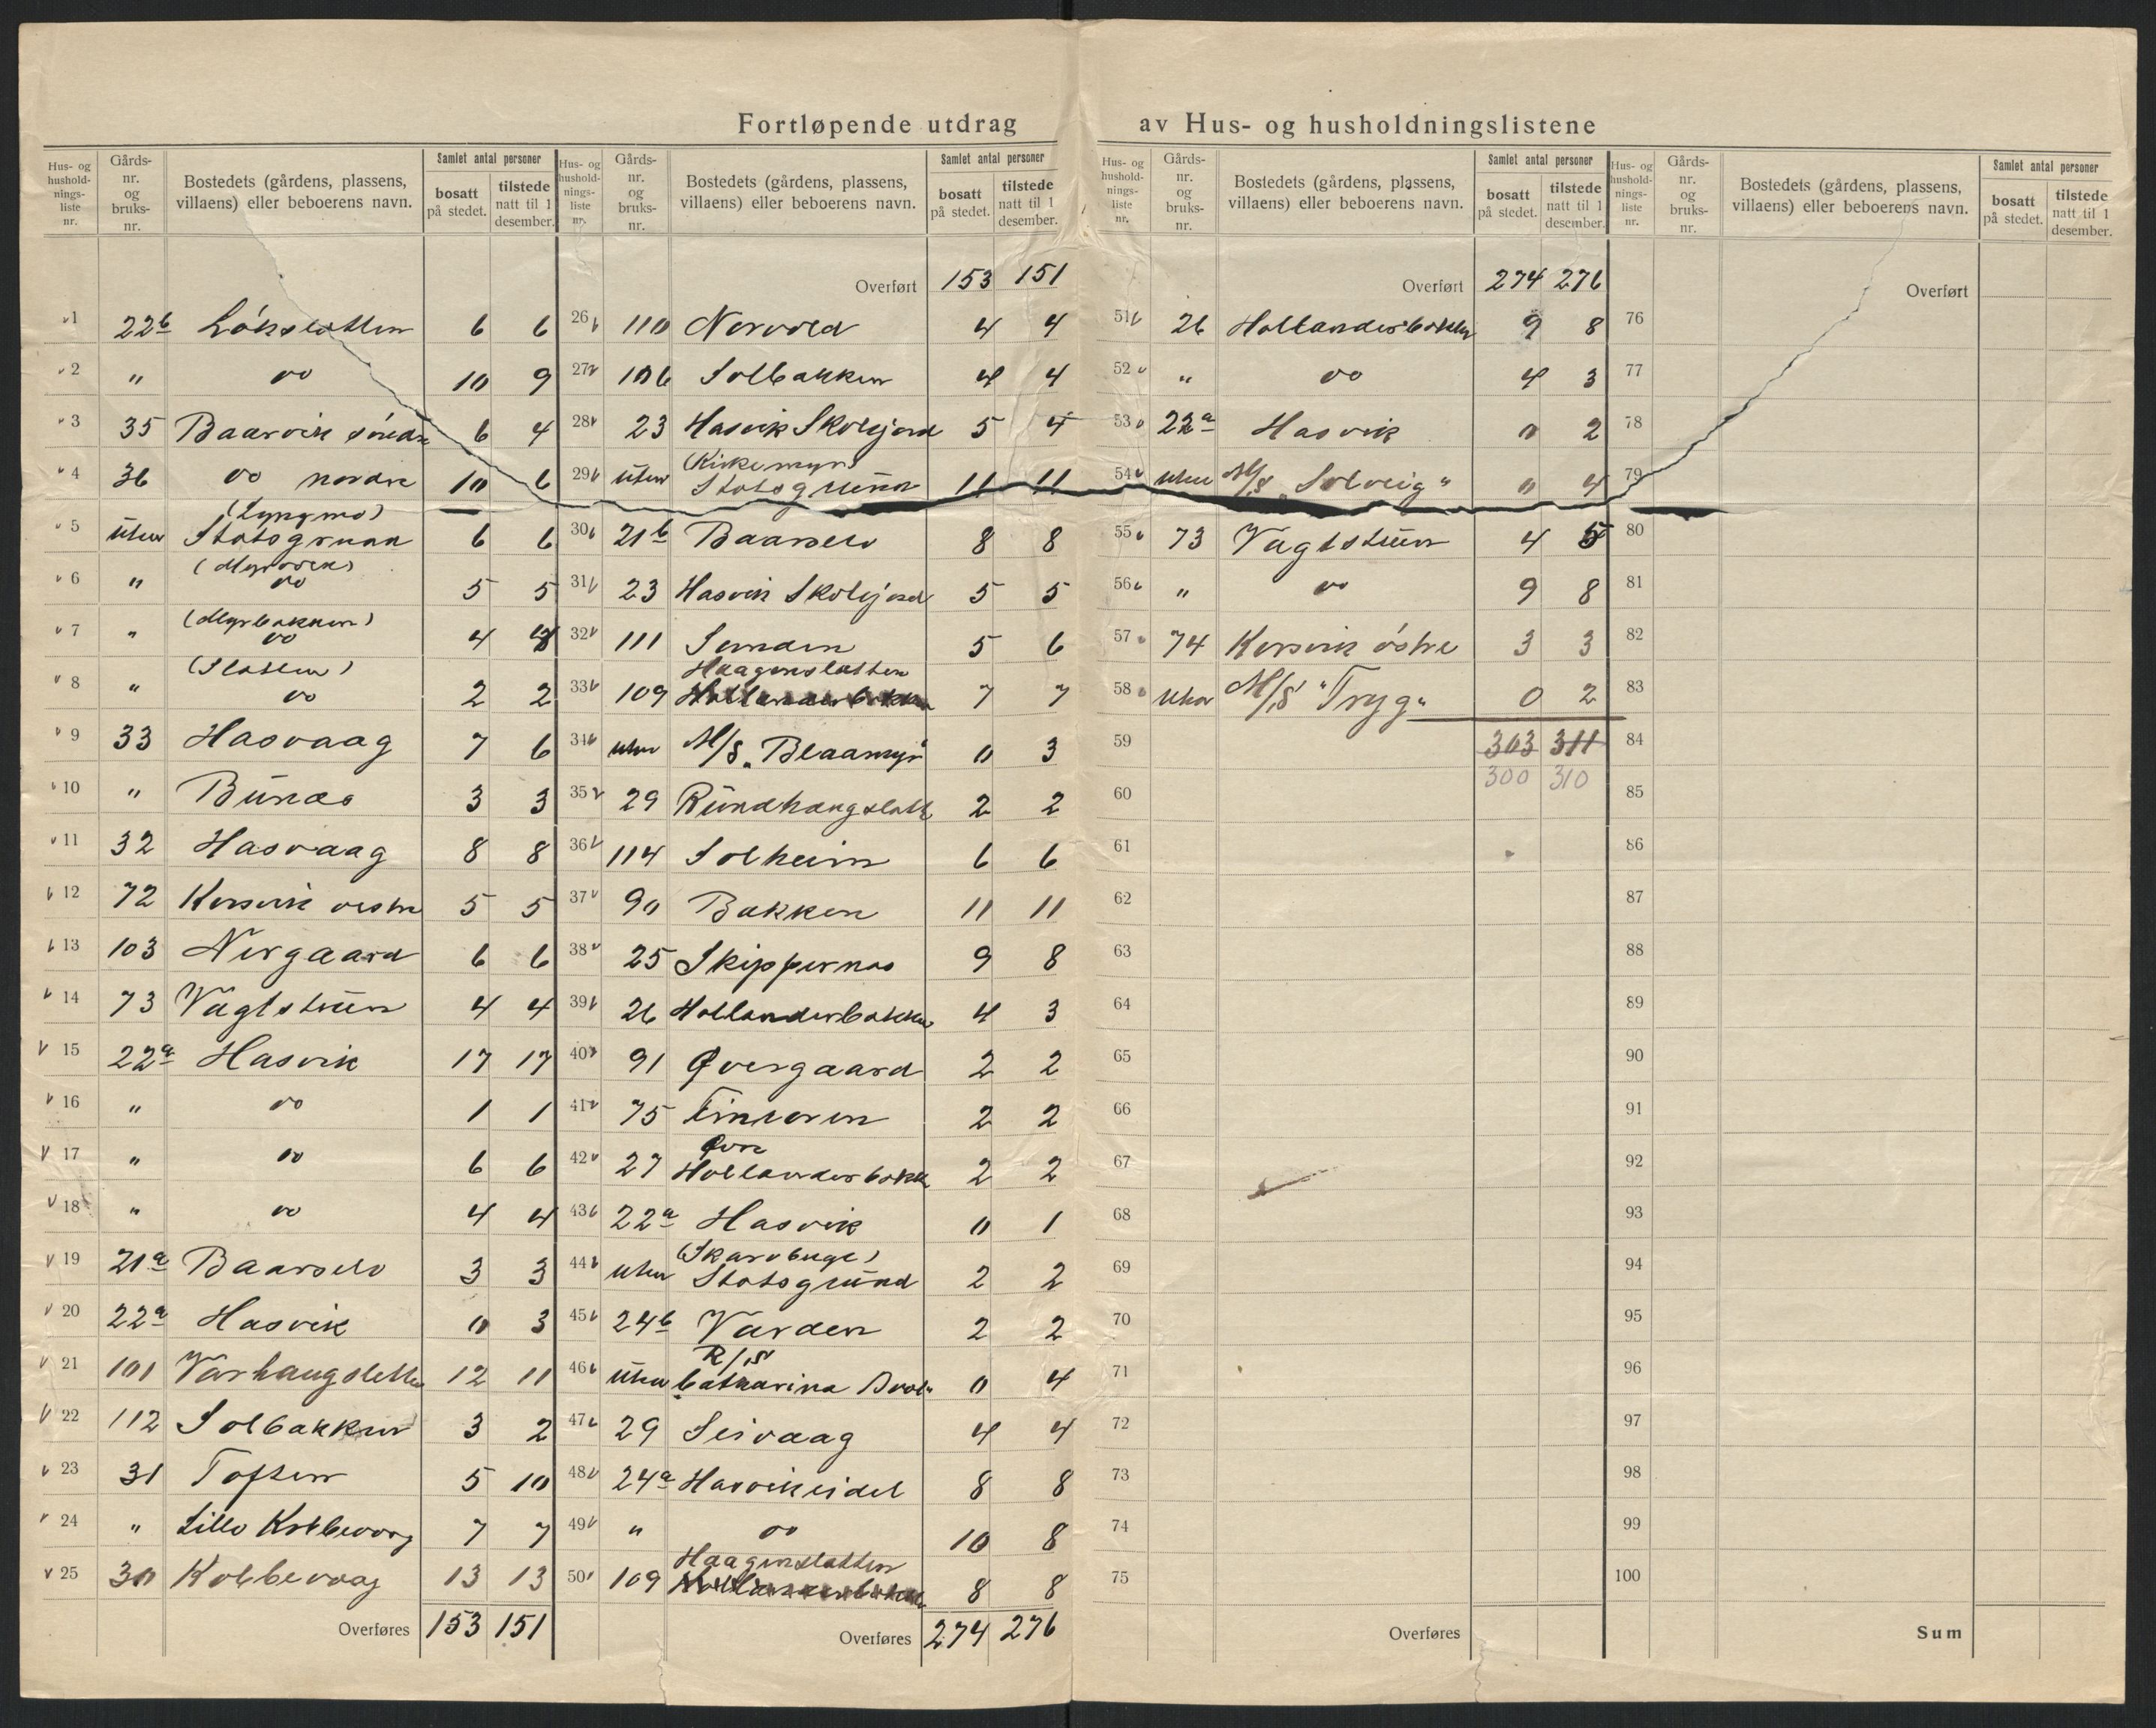 Fortløpende utdrag av Hus- og husholdningslistene
Hus- og hushold-nings-liste nr. Gårds-nr. og bruks-nr. Bostedets (gårdens, plassens, villaens) eller beboerens navn. Samlet antal personer bosatt på stedet. tilstede natt til 1 desember.
1 22b 6 6
2 " do 10 9
3 35 Baarvik søndre 6 4
4 36 do nordre 10 6
(Lyngmo)
5 uten Statsgrunn 6 6
6 " do 5 5
(Myrbakken)
7 " do 4
(Slatten)
8 " do 2 2
9 33 Hasvaag 7 6
10 " Bunæs 3 3
11 32 Hasvaag 8 8
12 72 Kersvik vestre 5 5
13 103 Nergaard 6 6
14 73 Vagtstuen 4 4
15 22a Hasvik 17 17
16 " do 1 1
17 " do 6 6
18 " do 4 4
19 21a Baarselv 3 3
20 22a Hasvik 0 3
21 101 Varhaugsletten 12 11
22 112 Solbakken 3 2
23 31 Toften 5 10
24 " Lille Kobbevaag 7 7
25 30 Kobbevaag 13 13
Overføres 153 151
Hus- og hushold-nings-liste nr. Gårds-nr. og bruks-nr. Bostedets (gårdens, plassens, villaens) eller beboerens navn. Samlet antal personer bosatt på stedet. tilstede natt til 1 desember.
Overført 153 151
26 110 Norvold 4 4
27 106 Solbakken 4 4
28 23 Hasvik Skolejord 5 4
(Kirkemyr)
29 uten Statsgrunn 11 11
30 21b Baarselv 8 8
31 23 Hasvik Skolejord 5 5
32 111 Sanden 5 6
Haagenslatten
33 109 Hollenderbakken 7 7
34 uten M/S "Blaamyr" 0 3
35 29 Rundhaugslatt 2 2
36 114 Solheim 6 6
37 90 Bakken 11 11
38 25 Skippernes 9 8
39 26 Hollanderbakken 4 3
40 91 Øvergaard 2 2
41 75 2 2
Øvre
42 27 Hollanderbakk 2 2
43 22a Hasvik 0 1
44 uten Statsgrund 2 2
45 24b Varden 2 2
R/S
46 uten Catharina 0 4
47 29 Seivaag 4 4
48 24a Hasvikeidet 8 8
49 " do 10 8
Haagenslatten
50 109 Hollanderbakken 8 8
Overføres 274 276
Hus- og hushold-nings-liste nr. Gårds-nr. og bruks-nr. Bostedets (gårdens, plassens, villaens) eller beboerens navn. Samlet antal personer bosatt på stedet. tilstede natt til 1 desember.
Overført 274 276
51 26 Hollanderbakken 9 8
52 " do 4 3
53 22a Hasvik 0 2
54 uten M/S "Solveig" 0 4
55 73 Vagtstuen 4 5
56 " do 9 8
57 74 Kersvik østre 3 3
58 uten M/S "Tryg" 0 2
59 303 311
300 310
60
61
62
63
64
65
66
67
68
69
70
71
72
73
74
75
Overføres
Hus- og hushold-nings-liste nr. Gårds-nr. og bruks-nr. Bostedets (gårdens, plassens, villaens) eller beboerens navn. Samlet antal personer bosatt på stedet. tilstede natt til 1 desember.
Overført
76
77
78
79
80
81
82
83
84
85
86
87
88
89
90
91
92
93
94
95
96
97
98
99
100
Sum